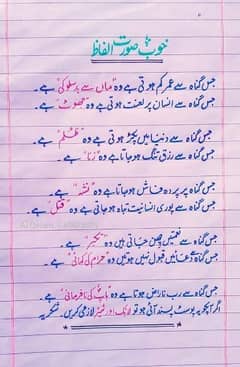 خوب صورت الفاظ
جس گناہ سے عمر کم ہوتی ہے وہ "ماں سے بدسلوکی" ہے۔
جس گناہ سے انسان پر لعنت ہوتی ہے وہ "جھوٹ" ہے۔
جس گناہ سے دنیا میں پکڑ ہوتی ہے وہ "ظلم" ہے۔
جس گناہ سے رزق تنگ ہو جاتا ہے وہ "زنا" ہے۔
جس گناہ پر پردہ فاش ہو جاتا ہے وہ "نشہ" ہے۔
جس گناہ سے پوری انسانیت تباہ ہو جاتی ہے وہ "قتل" ہے۔
جس گناہ سے نعمتیں چھن جاتی ہیں وہ "تکبر" ہے۔
جس گناہ دعائیں قبول نہیں ہوتیں وہ "حرام کی کمائی" ہے۔
جس گناہ سے رب ناراض ہوتا ہے وہ "باپ کی نافرمانی" ہے۔
اگر آپکو یہ پوسٹ پسند آئی ہو تو لائک اور شیئر لازمی کریں۔ شکریہ